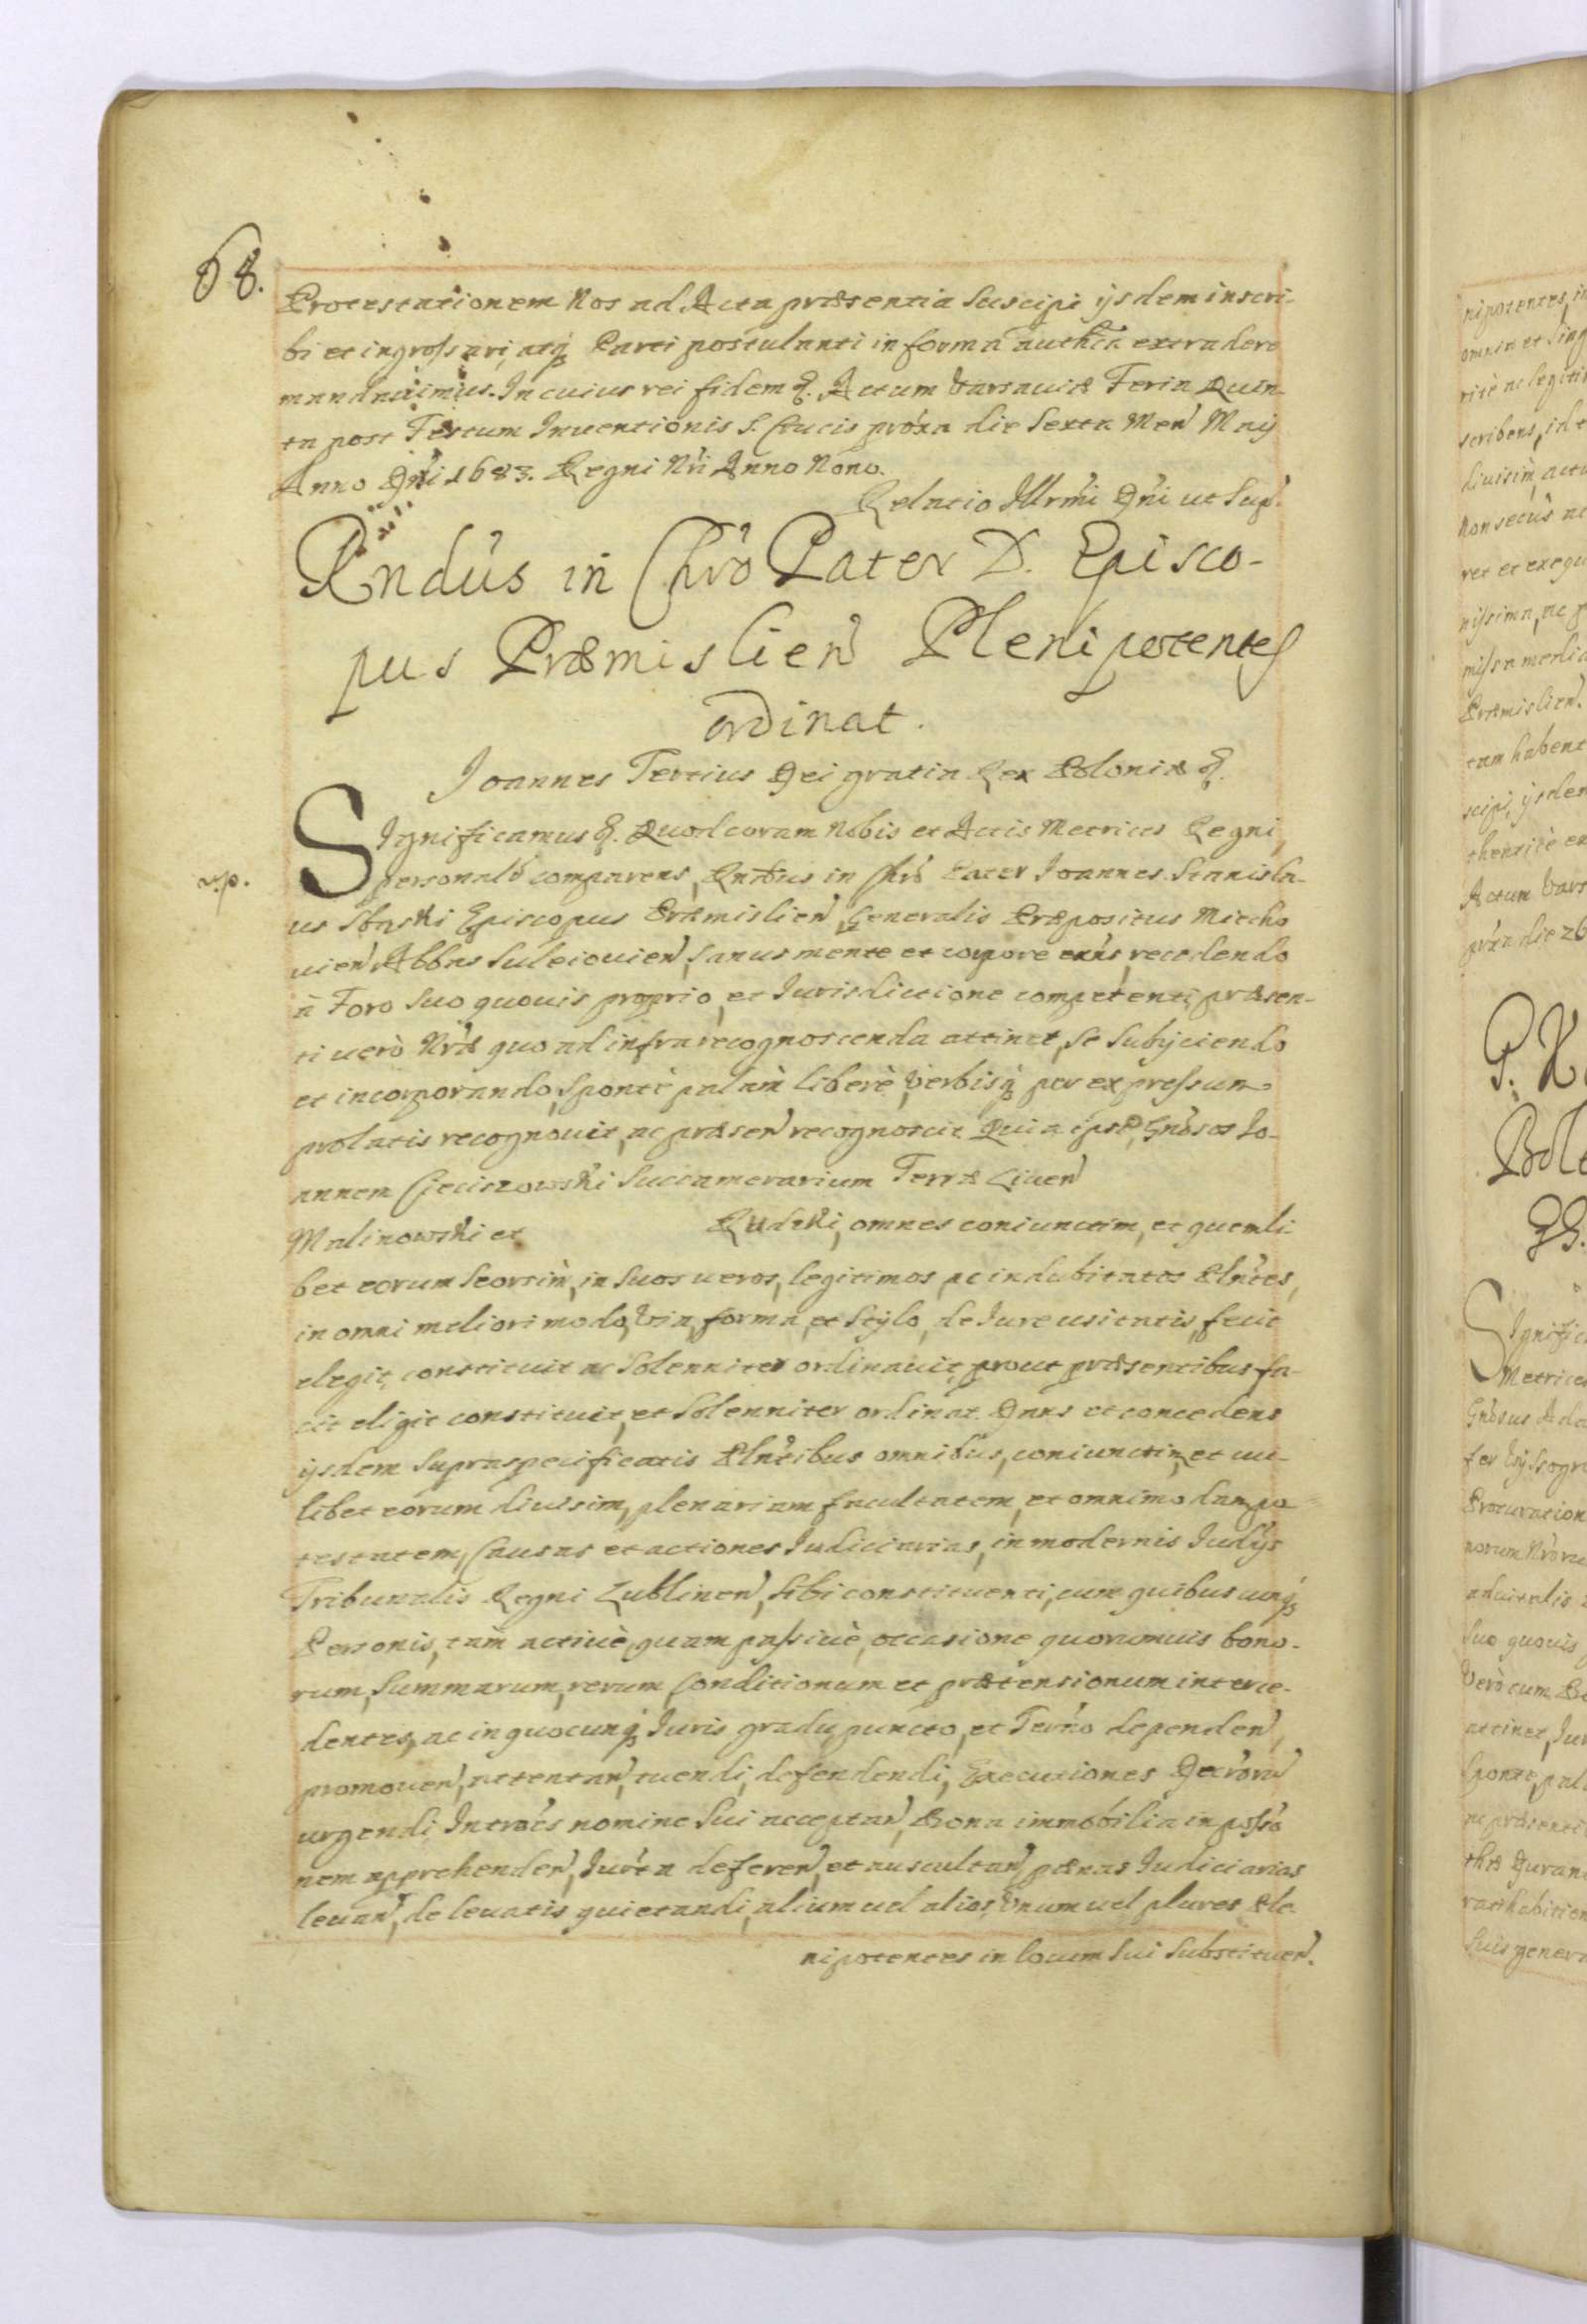 68.
Protestationem Nos ad Acta præsentia suscipi ijsdem inscri-
bi et ingrossari, atq3 Parti postulanti in forma auth̃ca extradere
mandauimus. In cuius rei fidem &. Actum Varsauiæ Feria Quin-
ta post Festum Inuentionis S. Crucis próxa die Sexta Men̄ Maij
Anno Dn̄i 1683. Regni Nr̄i Anno Nono.
Relatio Illrm̄i Dn̄i ut sup̄.
Rndūs in Chr̄o Pater D. Episco-
pus Præmislien̄ Plenipotentes
ordinat.
Joannes Tertius Dei gratia Rex Poloniæ &.
Significamus &. Quod coram Nobis et Actis Metrices Regni,
personalr̄ comparens, Rndūs in Chrō Pater Joannes Stanisla-
us Sbąski Episcopus Præmislien̄, Generalis Præpositus Miecho
uien̄ Abbas Suleiouien̄, sanus mente et corpore exn̄s, recedendo
à Foro suo quouis proprio, et Jurisdictione competenti, præsen-
ti uerò Nrǣ quo ad infra recognoscenda attinet, se subijciendo
et incorporando, sponte palàm liberè, Verbisq3 per expressum
prolatis recognouit, ac præsen̄ recognoscit. Quia ipse, Gnōsos Jo-
annem Cieciszowski Succamerarium Terræ Liuen̄
Malinowski et Rudzki, omnes coniunctim, et quemli-
bet eorum seorsim̀, in suos ueros, legitimos, ac indubitatos Pln̄tes,
in omni meliori modo, Via, forma, et stylo, de Jure usitatis, fecit
elegit, constituit ac Solenniter ordinauit, prout præsentibus fa-
cit eligit constituit, et Solenniter ordinat. Dans et concedens
ijsdem supraspecificatis Pln̄tibus omnibus, coniunctim, et cui-
libet eorum diuisim, plenariam facultatem, et omnimodam po
testatem, Causas et actiones Judiciarias, in modernis Judijs
Tribunalis Regni Lublinen̄, sibi constituenti, cum quibuscunq3
Personis, tàm actiuè, quam passiuè, occasione quorumuis bono-
rum, Summarum, rerum, Conditionum et prætensionum interce-
dentes, ac in quocunq3 Juris gradu, puncto, et Terno̅ dependen̄,
promouen̄, attentan̄, tuendi, defendendi, Executiones Decrōru̅
urgendi, Introēs nomine sui acceptan̄, Bona immobilia in posse̅o
nem apprehenden̄, Jurta̅ deferen̄, et auscultan̄, pænas Judiciarias
leuan̄, de leuatis quietandi, alium uel alios, Vnum uel plures Ple-
nipotentes in locum sui substituen̄.